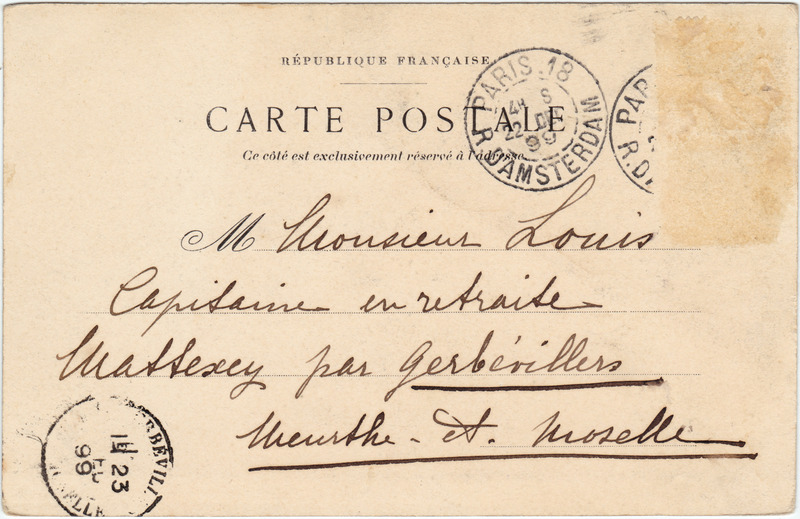 RÉPUBLIQUE FRANÇAISE
CARTE POSTALE
Ce côté est exclusivement réservé à l'adresse
PARIS . 18
4E S
22 DE
99
R. D'AMSTERDAM
PAR
R. D'A
M Monsieur Louis
Capitaine en retraite
Mattexey par Gerbévillers
Meurthe-et-Moselle
RBÉVILL
23
99
SELLE